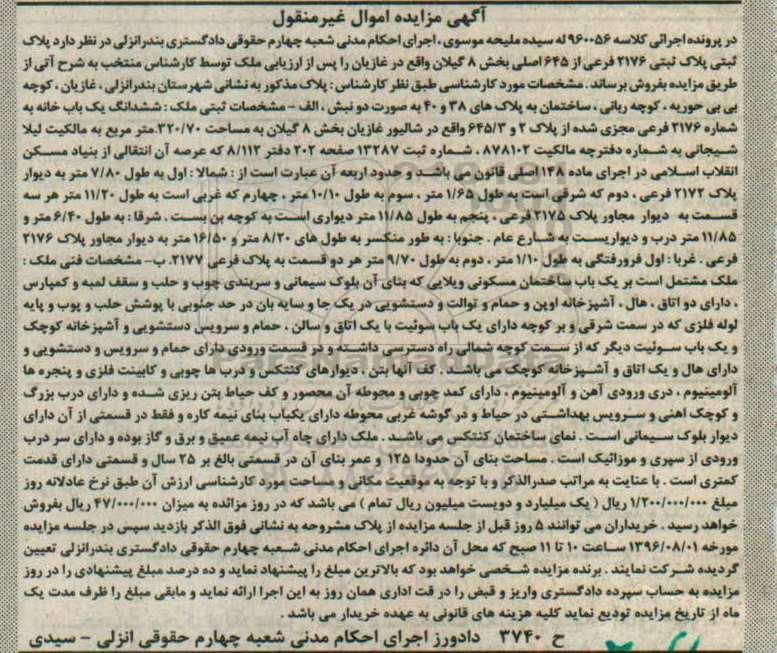 آگهی مزایده اموال غیرمنقول
در پرونده اجرائی کلاسه ۹۶۰۰۵۶ له سیده ملیحه موسوی ، اجرای احکام مدنی شعبه چهارم حقوقی دادگستری بندرانزلی در نظر دارد پلاک
ثبتی پلاک ثبتی ۲۱۷۶ فرعی از ۶۴۵ اصلی بخش ۸ گیلان واقع در غازیان را پس از ارزیابی ملک توسط کارشناس منتخب به شرح آتی از
طریق مزایده بفروش برساند. مشخصات مورد کارشناسی طبق نظر کارشناس : پلاک مذکور به نشانی شهرستان بندرانزلی ، غازیان ، کوچه
بی بی حوریه ، کوچه ربانی ، ساختمان به پلاک های ۳۸ و ۴۰ به صورت دو نبش ، الف - مشخصات ثبتی ملک : ششدانگ یک باب خانه به
شماره ۲۱۷۶ فرعی مجزی شده از پلاک ۲ و ۶۴۵/۳ واقع در شالیور غازیان بخش ۸ گیلان به مساحت ۳۲۰/۷۰ متر مربع به مالکیت لیلا
شیجانی به شماره دفترچه مالکیت ۸۷۸۱۰۲ ، شماره ثبت ۱۳۲۸۷ صفحه ۲۰۲ دفتر ۸/۱۱۲ که عرصه آن انتقالی از بنیاد مسکن
انقلاب اسلامی در اجرای ماده ۱۴۸ اصلی قانون می باشد و حدود اربعه آن عبارت است از : شمالا : اول به طول ۷/۸۰ متر به دیوار
پلاک ۲۱۷۲ فرعی ، دوم که شرقی است به طول ۱/۶۵ متر ، سوم به طول ۱۰/۱۰ متر ، چهارم که غربی است به طول ۱۱/۲۰ متر هر سه
قسمت به دیوار مجاور پلاک ۲۱۷۵ فرعی ، پنجم به طول ۱۱/۸۵ متر دیواری است به کوچه بن بست . شرقا : به طول ۶/۴۰ متر و
۱۱/۸۵ متر درب و دیواریست به شارع عام . جنوبا : به طور منکسر به طول های ۸/۲۰ متر و ۱۶/۵۰ متر به دیوار مجاور پلاک ۲۱۷۶
فرعی . غربا : اول فرورفتگی به طول ۱/۱۰ متر ، دوم به طول ۹/۷۰ متر هر دو قسمت به پلاک فرعی ۲۱۷۷. ب- مشخصات فنی ملک :
ملک مشتمل است بر یک باب ساختمان مسکونی ویلایی که بنای آن بلوک سیمانی و سربندی چوب و حلب و سقف لمبه و کمپارس
، دارای دو اتاق ، هال ، آشپزخانه اوپن و حمام و توالت و دستشویی در یک جا و سایه بان در حد جنوبی با پوشش حلب و پوب و پایه
لوله فلزی که در سمت شرقی و بر کوچه دارای یک باب سوئیت با یک اتاق و سالن ، حمام و سرویس دستشویی و آشپزخانه کوچک
و یک باب سوئیت دیگر که از سمت کوچه شمالی راه دسترسی داشته و در قسمت ورودی دارای حمام و سرویس و دستشویی و
دارای هال و یک اتاق و آشپزخانه کوچک می باشد . کف آنها بتن ، دیوارهای کنتکس و درب ها چوبی و کابینت فلزی و پنجره ها
آلومینیوم ، دری ورودی آهن و آلومینیوم ، دارای کمد چوبی و محوطه آن محصور و کف حیاط بتن ریزی شده و دارای درب بزرگ
و کوچک اهنی و سرویس بهداشتی در حیاط و در گوشه غربی محوطه دارای یکباب بنای نیمه کاره و فقط در قسمتی از آن دارای
دیوار بلوک سیمانی است . نمای ساختمان کنتکس می باشد . ملک دارای چاه آب نیمه عمیق و برق و گاز بوده و دارای سر درب
ورودی از سپری و موزائیک است . مساحت بنای آن حدودا ۱۲۵ و عمر بنای آن در قسمتی بالغ بر ۲۵ سال و قسمتی دارای قدمت
کمتری است . با عنایت به مراتب صدرالذکر و با توجه به موقعیت مکانی و مساحت مورد کارشناسی ارزش آن طبق نرخ عادلانه روز
مبلغ ۱/۲۰۰/۰۰۰/۰۰۰ ریال ( یک میلیارد و دویست میلیون ریال تمام ) می باشد که در روز مزائده به میزان ۴۷/۰۰۰/۰۰۰ ریال بفروش
خواهد رسید . خریداران می توانند ۵ روز قبل از جلسه مزایده از پلاک مشروحه به نشانی فوق الذکر بازدید سپس در جلسه مزایده
مورخه ۱۳۹۶/۰۸/۰۱ ساعت ۱۰ تا ۱۱ صبح که محل آن دائره اجرای احکام مدنی شعبه چهارم حقوقی دادگستری بندرانزلی تعیین
گردیده شرکت نمایند . برنده مزایده شخصی خواهد بود که بالاترین مبلغ را پیشنهاد نماید و ده درصد مبلغ پیشنهادی را در روز
مزایده به حساب سپرده دادگستری واریز و قبض را در قت اداری همان روز به این اجرا ارائه نماید و مابقی مبلغ را ظرف مدت یک
ماه از تاریخ مزایده تودیع نماید کلیه هزینه های قانونی به عهده خریدار می باشد .
ح ۳۷۴۰ دادورز اجرای احکام مدنی شعبه چهارم حقوقی انزلی - سیدی